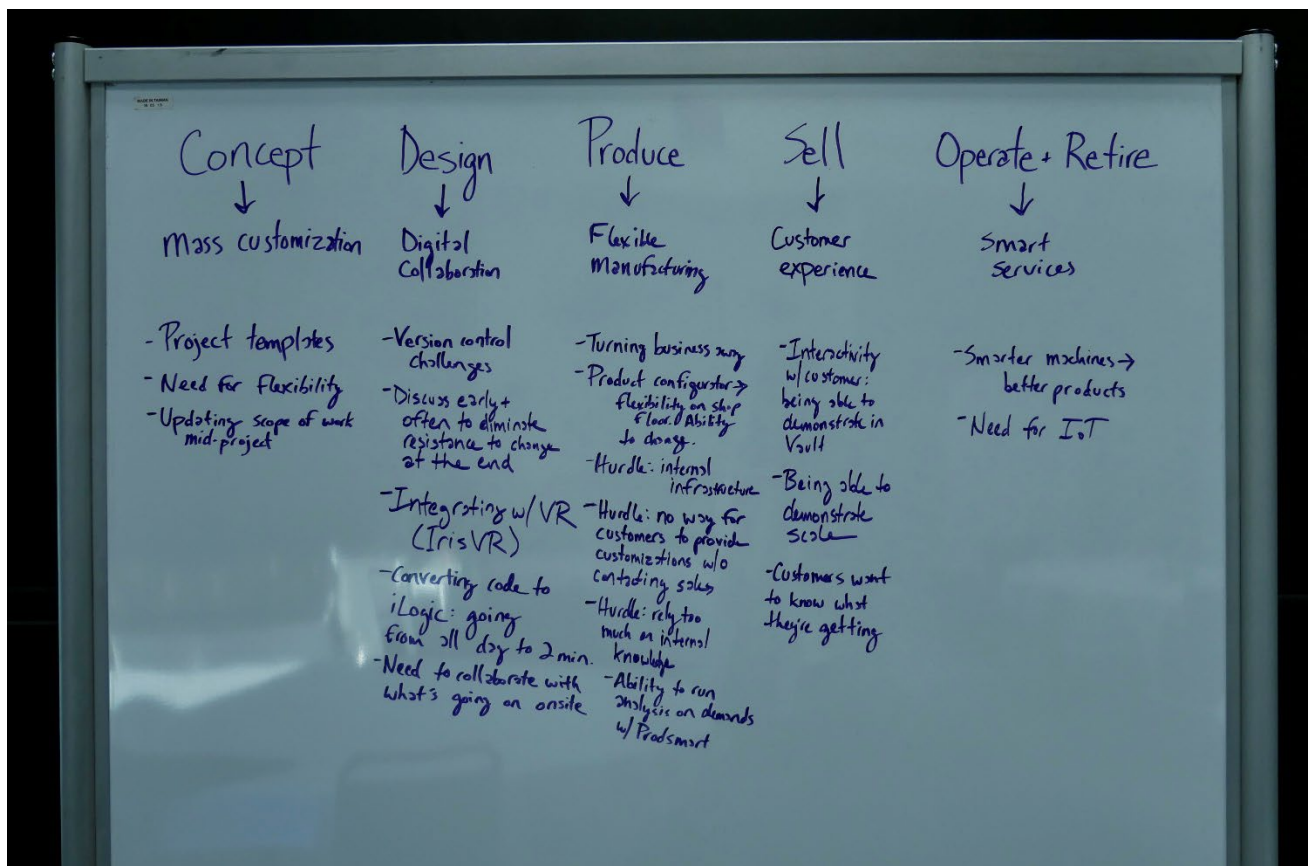 MADE IN TAIWAN
Concept
Mass customization
- Project templates
- Need for flexibility
- Updating scope of work
mid-project
Design
Digital
Collaboration
- Version control
challenges
- Discuss early +
often to eliminate
resistance to change
at the end
- Integrating w/ VR
(IrisVR)
- Converting code to
iLogic: going
from all day to 2 min.
- Need to collaborate with
what's going on onsite
Produce
Flexible
manufacturing
- Turning business away
- Product configurator →
flexibility on shop
floor. Ability
to change.
- Hurdle: internal
infrastructure
- Hurdle: no way for
customers to provide
customizations w/o
contacting sales
- Hurdle: rely too
much on internal
knowledge
- Ability to run
analysis on demands
w/ Prodsmart
Sell
Customer
experience
- Interactivity
w/ customer:
being able to
demonstrate in
Vault
- Being able to
demonstrate
scale
- Customers want
to know what
they're getting
Operate + Retire
Smart
services
- Smarter machines →
better products
- Need for IoT